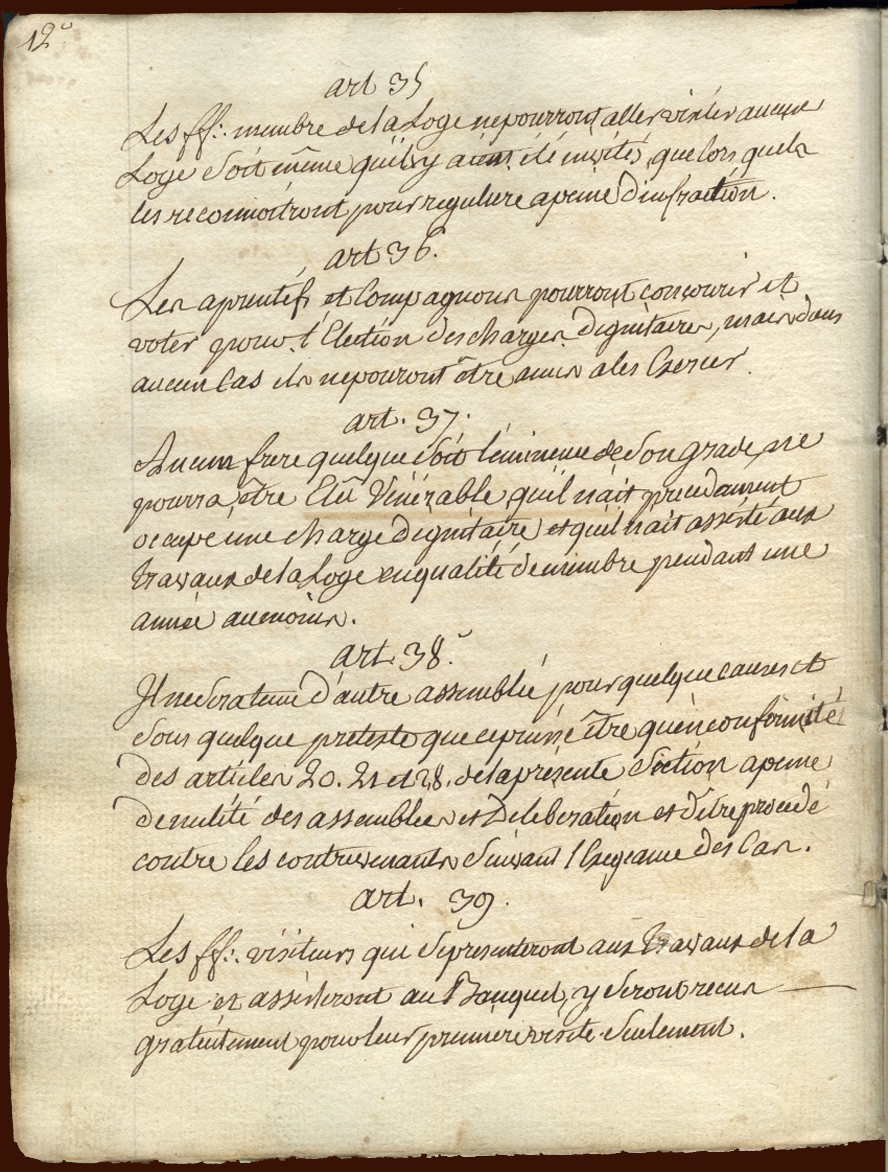 12º
art 35
Les ff∴ membre de la Loge ne pourront aller visiter aucune
Loge soit même quils y aient été invités, que lors quels
les reconnoitront pour reguliere a peine d'infraction.
art 36.
Les aprentifs et Compagnons pourront concourir et
voter pour l'Election des charges dignitaires, mais dans
aucun Cas ils ne pouront être admis a les Exercer.
art. 37.
Aucun frere quelque soit l'eminence de son grade, ne
pourra être Elû Vénérable, qu'il n'ait precedament
ocupé une charge dignitaire et qu'il n'ait assisté aux
travaux de la Loge en qualité de membre pendant une
année au moins.
art. 38.
Il ne sera tenu d'autre assemblée pour quelque causes et
sous quelque preteste que ce puisse être qu'en conformité
des articles 20. 21 et 28. de la présente Séction a peine
de nulité des assemblées et Deliberation et d'être procedé
contre les contrevenants suivant l'Exegeance des Cas.
art. 39.
Les ff∴ visiteurs qui se presenteront aux travaux de la
Loge et assisteront au Banquet, y seront recus
gratuitement pour leur premiere visite seulement.